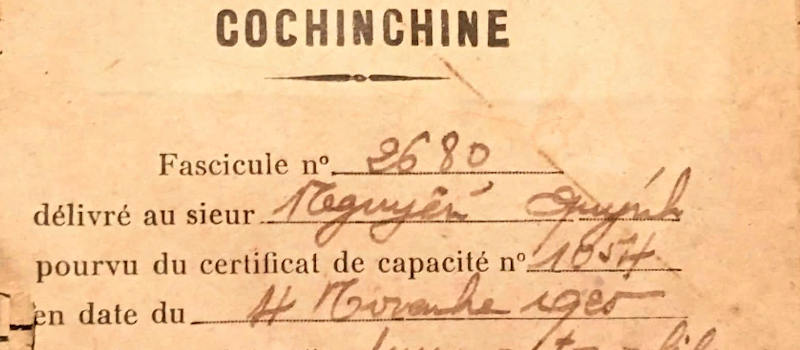 COCHINCHINE
Fascicule nº 2680
délivré au sieur Nguyễn Quỳnh
pourvu du certificat de capacité nº 1054
en date du 4 Novembre